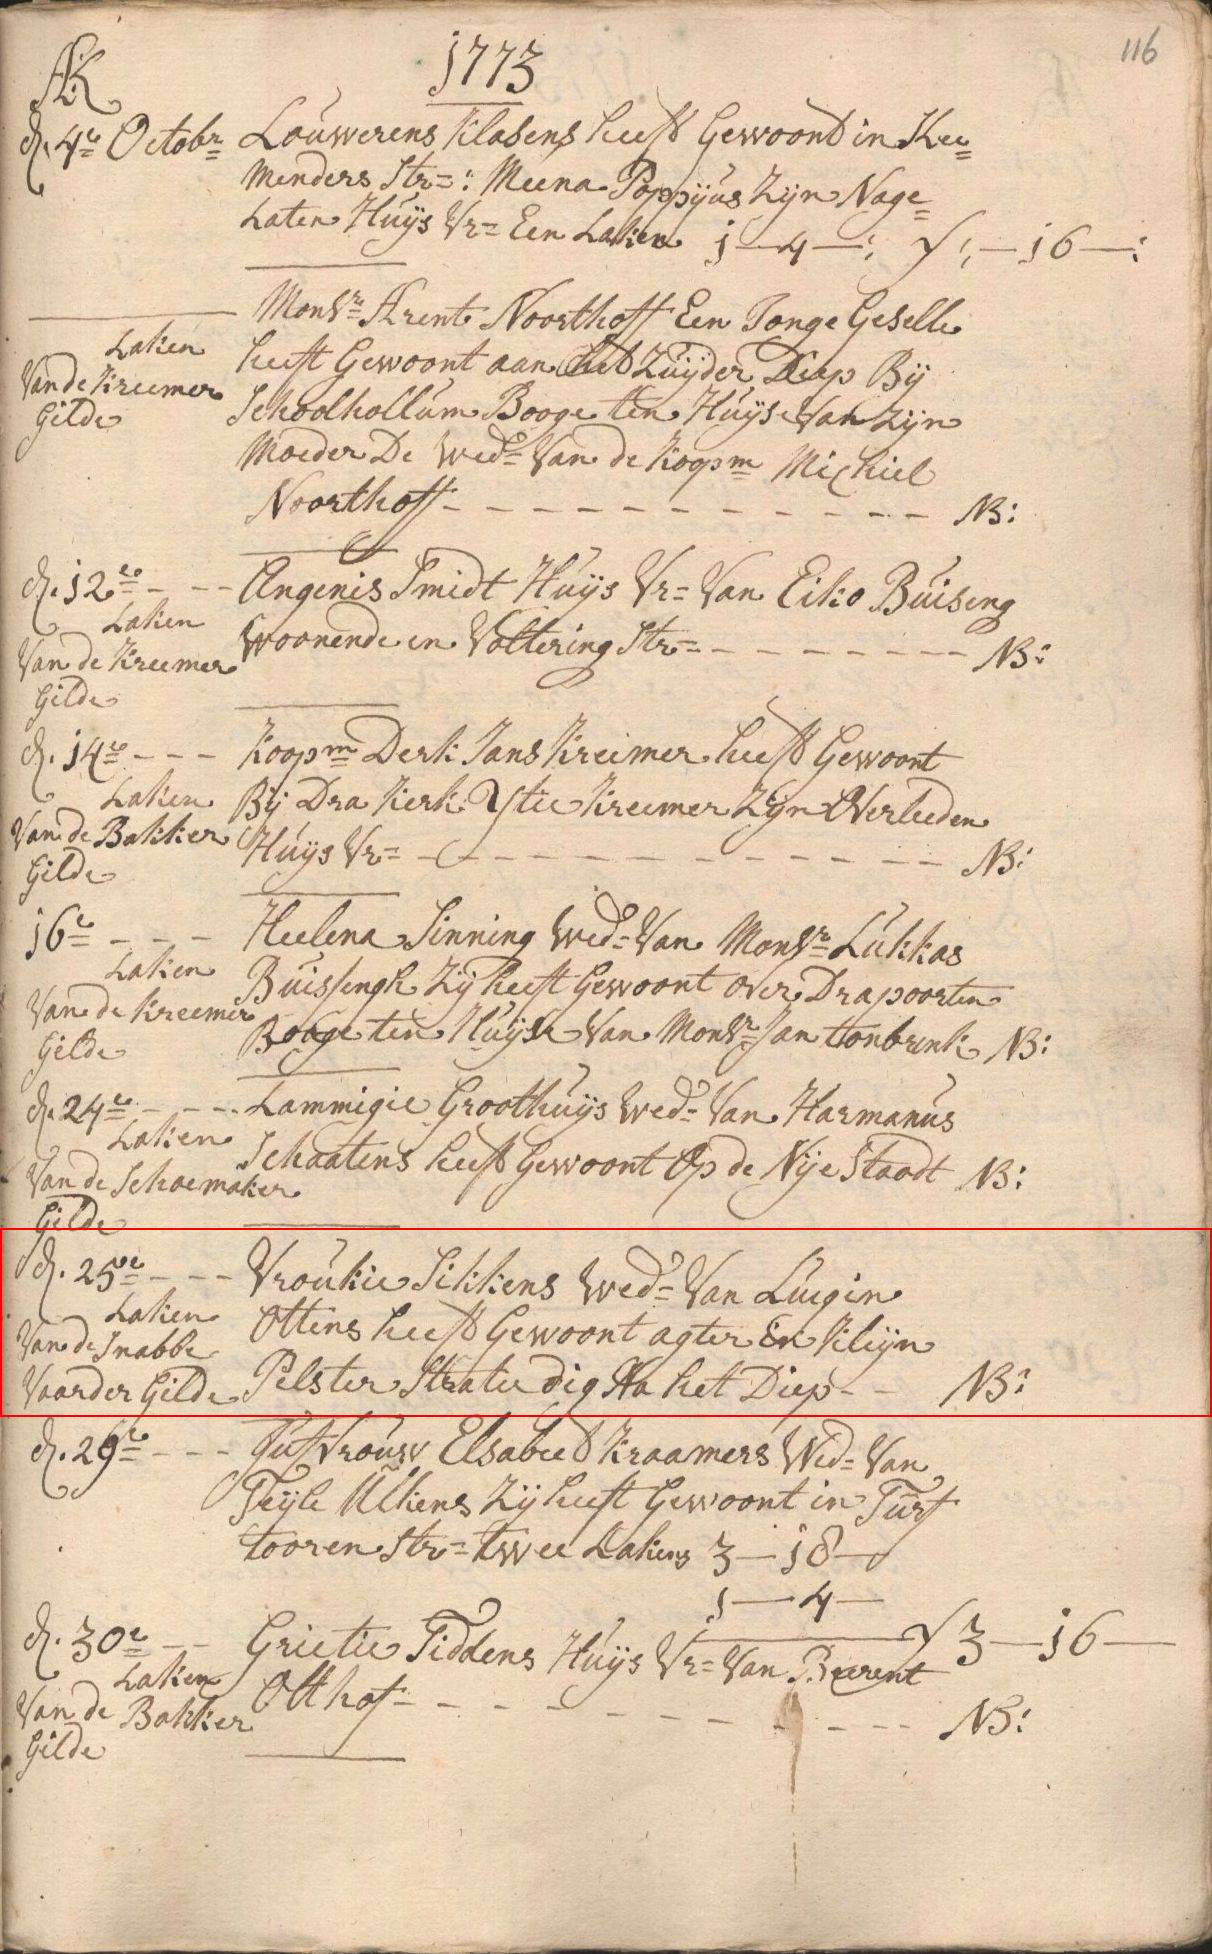 116
AK
1773
d. 4e Octobr Louwerens Klasens heeft Gewoont in Hee=
Menders Str=: Meena Poppijus Zijn Nage=
Laten Huijs Vr= Een Laken 1—4—: f :—16—:
Monsr Arent Noorthoff Een Jonge Geselle
Laken
heeft Gewoont aan het Zuijder Diep Bij
Van de Kreemer
Schoolhollum Booge ten Huijse Van Zijn
Gilde
Moeder De Wed= Van de Koopm Michiel
Noorthoff - - - - - - - - - - - NB:
d. 12e - - - Angenis Smidt Huijs Vr= Van Eiko Buiseng
Laken
Woonende in Volteringstr= - - - - - - - - NB:
Van de Kreemer
Gilde
d. 14e - - - Koopm Derk Jans Kreimer heeft Gewoont
Laken
Bij Dra Kerk: Ytie Kreemer Zijn Overleeden
Van de Bakker
Huijs Vr= - - - - - - - - - - - - NB:
Gilde
16e - - - Heelena Sinning Wed= Van Monsr Lukkas
Laken
Buissengh Zij heeft Gewoont over Drapoorten
Van de Kreemer
Booge ten Huijse Van Monsr Jan Tonbrink NB:
Gilde
d. 24e - - - Lammigie Groothuijs Wed= Van Harmanus
Laken
Schaatens heeft Gewoont Op de Nije Staadt NB:
Van de Schoemaker
Gilde
d. 25e - - - Vroukie Sikkens Wed= Van Luigin
Laken
Ottens heeft Gewoont agter En Kleijn
Van de Snabbe
Voorder Gilde Pelster Straate dig Aa het Diep - - NB:
d. 29e - - - Jufvrouw Elsabeed Kraamers Wed= Van
Teijle Ulkens Zij heeft Gewoont in Turf
tooren Str= twee Lakens 3—18—
1—4—
f 3—16—
d. 30e - - Grietie Tiddens Huijs Vr= Van Beerent
Laken
Olthof - - - - - - - - - - NB:
Van de Bakker
Gilde